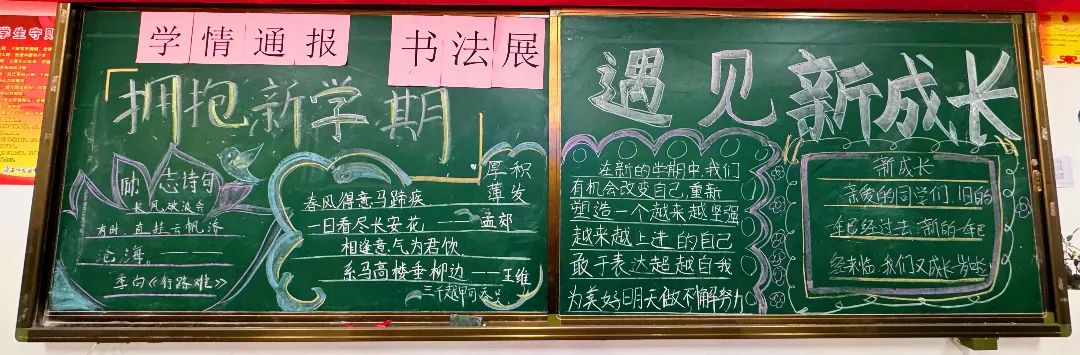 学生守则
学情通报
书法展
拥抱新学期
励志诗句
长风破浪会
有时，直挂云帆济
沧海。
李白《行路难》
厚积
薄发
春风得意马蹄疾
一日看尽长安花——孟郊
相逢意气为君饮
系马高楼垂柳边——王维
三千越甲可吞吴
遇见新成长
在新的学期中，我们
有机会改变自己，重新
塑造一个越来越坚强
越来越上进的自己
敢于表达超越自我
为美好明天做不懈努力
新成长
亲爱的同学们，旧的
年已经过去，新的一年已
经来临，我们又成长一岁啦